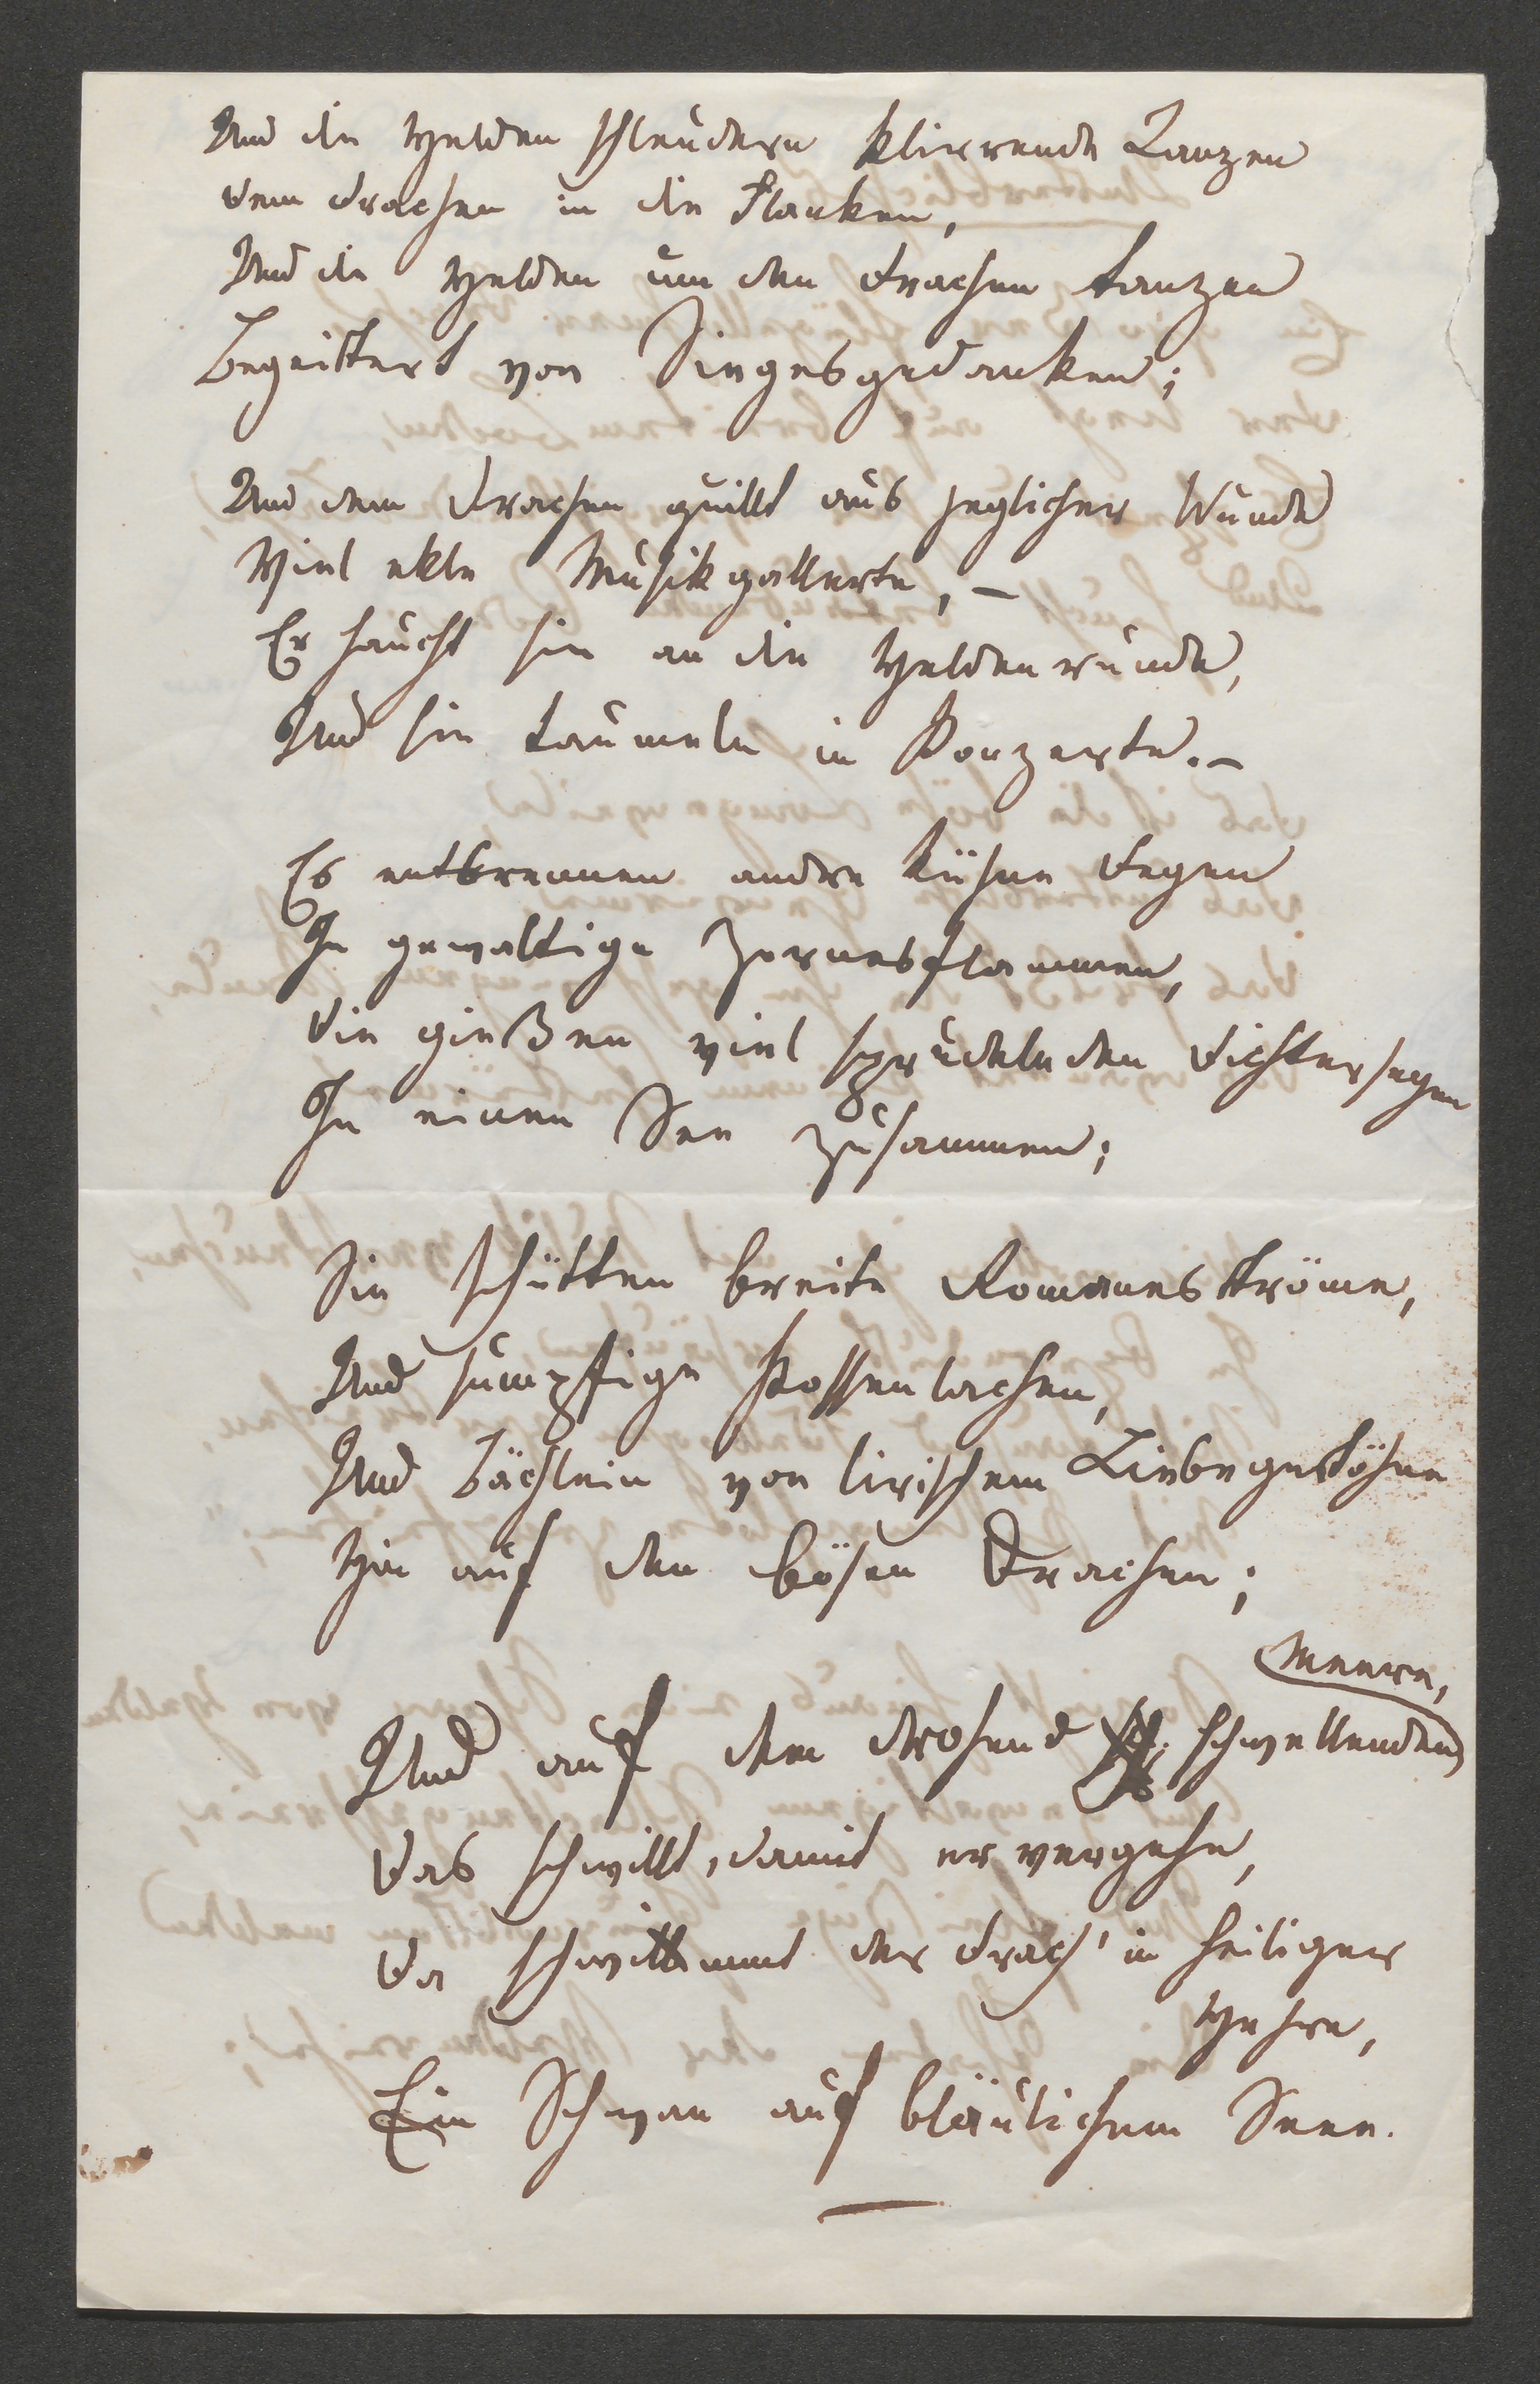 Und die Helden schleudern klirrende Lanzen
Dem Drachen in die Flanken,
Und die Helden um den Drachen tanzen
Begeistert von Siegesgedanken;
Und dem Drachen quillt aus jeglicher Wunde
Viel ekle Musikgallerte, –
Er haucht sie an die Heldenrunde,
Und sie taumeln in Konzerte. –
Es entbrennen andre kühne Degen
In gewaltige Zornesflammen,
Die gießen viel sprudelnden Dichtersegen
In einen See zusammen;
Sie schütten breite Romanesströme,
Und sumpfige Possenlachen,
Und Bächlein von lirischem Liebegestöhne
Hin auf den bösen Drachen;
Meere,
Und auf dem drohend schwellenden
Das schwillt, damit er vergehe,
Da schwimmt der Drach' in heiliger
Hehre,
Ein Schwan auf bläulichem See.